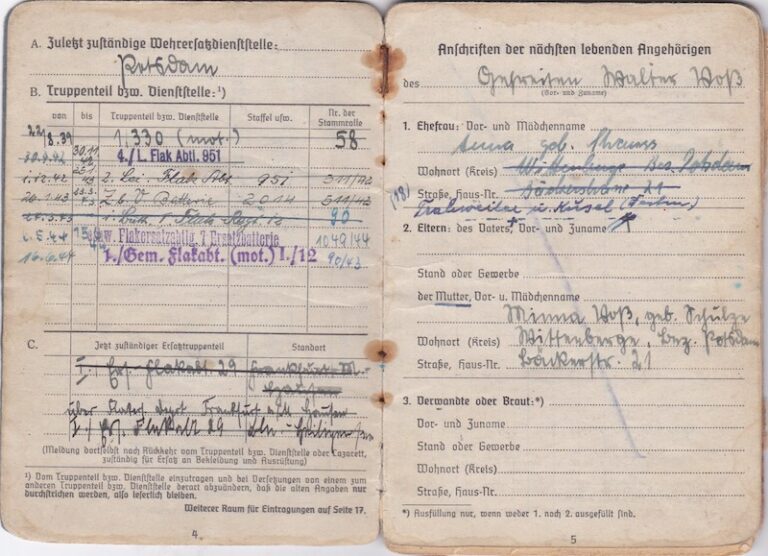 A. Zuletzt zuständige Wehrersatzdienststelle:
Potsdam
B. Truppenteil bzw. Dienststelle:¹)
von bis Truppenteil bzw. Dienststelle Staffel usw. Nr. der Stammrolle
22/8.39 1./330 (mot.) 58
4./L. Flak Abtl. 951
1.12.42 951 511/42
20.1.43 z.b.V. Batterie 2014 511/42
90
w. Flakersatzabtlg. 7 Ersatzbatterie 1049/44
16.6.44 1./Gem. Flakabt. (mot.) I./12 90/43
C. Jetzt zuständiger Ersatztruppenteil Standort
Ers. Flakabt 29 Frankfurt M.-
Hausen
über Frankfurt Hausen
Flakabt 29 Bln.-Heiligensee
(Meldung dortselbst nach Rückkehr vom Truppenteil bzw. Dienststelle oder Lazarett, zuständig für Ersatz an Bekleidung und Ausrüstung)
¹) Vom Truppenteil bzw. Dienststelle einzutragen und bei Versetzungen von einem zum
anderen Truppenteil bzw. Dienststelle derart abzuändern, daß die alten Angaben nur
durchstrichen werden, also leserlich bleiben.
Weiterer Raum für Eintragungen auf Seite 17.
4
Anschriften der nächsten lebenden Angehörigen
des Gefreiten Walter Voß
(Vor- und Zuname)
1. Ehefrau: Vor- und Mädchenname
Anna geb. Strauss
Wohnort (Kreis) Wittenberge Bez. Potsdam
Straße, Haus-Nr. Bäckerstraße 21
2. Eltern: des Vaters, Vor- und Zuname
Stand oder Gewerbe
der Mutter, Vor- u. Mädchenname
Minna Voß, geb. Schulze
Wohnort (Kreis) Wittenberge, Bez. Potsdam
Straße, Haus-Nr. Bäckerstr. 21
3. Verwandte oder Braut:*)
Vor- und Zuname
Stand oder Gewerbe
Wohnort (Kreis)
Straße, Haus-Nr.
*) Ausfüllung nur, wenn weder 1. noch 2. ausgefüllt sind.
5